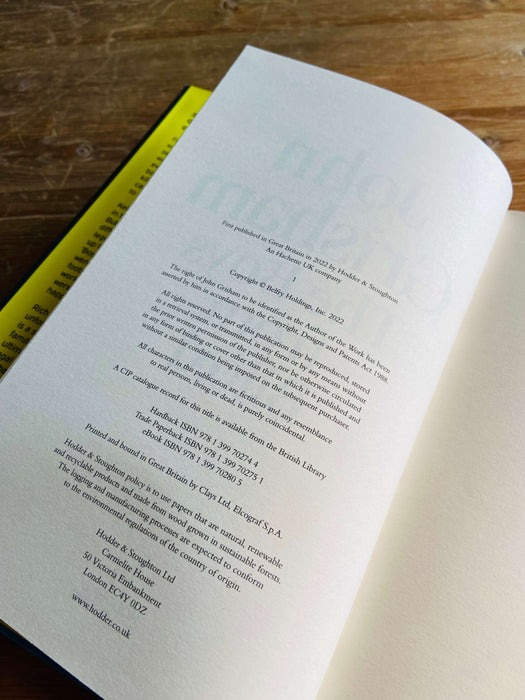 First published in Great Britain in 2022 by Hodder & Stoughton
An Hachette UK company
1
Copyright © Belfry Holdings, Inc. 2022
The right of John Grisham to be identified as the Author of the Work has been
asserted by him in accordance with the Copyright, Designs and Patents Act 1988.
All rights reserved. No part of this publication may be reproduced, stored
in a retrieval system, or transmitted, in any form or by any means without
the prior written permission of the publisher, nor be otherwise circulated
in any form of binding or cover other than that in which it is published and
without a similar condition being imposed on the subsequent purchaser.
All characters in this publication are fictitious and any resemblance
to real persons, living or dead, is purely coincidental.
A CIP catalogue record for this title is available from the British Library
Hardback ISBN 978 1 399 70274 4
Trade Paperback ISBN 978 1 399 70275 1
eBook ISBN 978 1 399 70280 5
Printed and bound in Great Britain by Clays Ltd, Elcograf S.p.A.
Hodder & Stoughton policy is to use papers that are natural, renewable
and recyclable products and made from wood grown in sustainable forests.
The logging and manufacturing processes are expected to conform
to the environmental regulations of the country of origin.
Hodder & Stoughton Ltd
Carmelite House
50 Victoria Embankment
London EC4Y 0DZ
www.hodder.co.uk